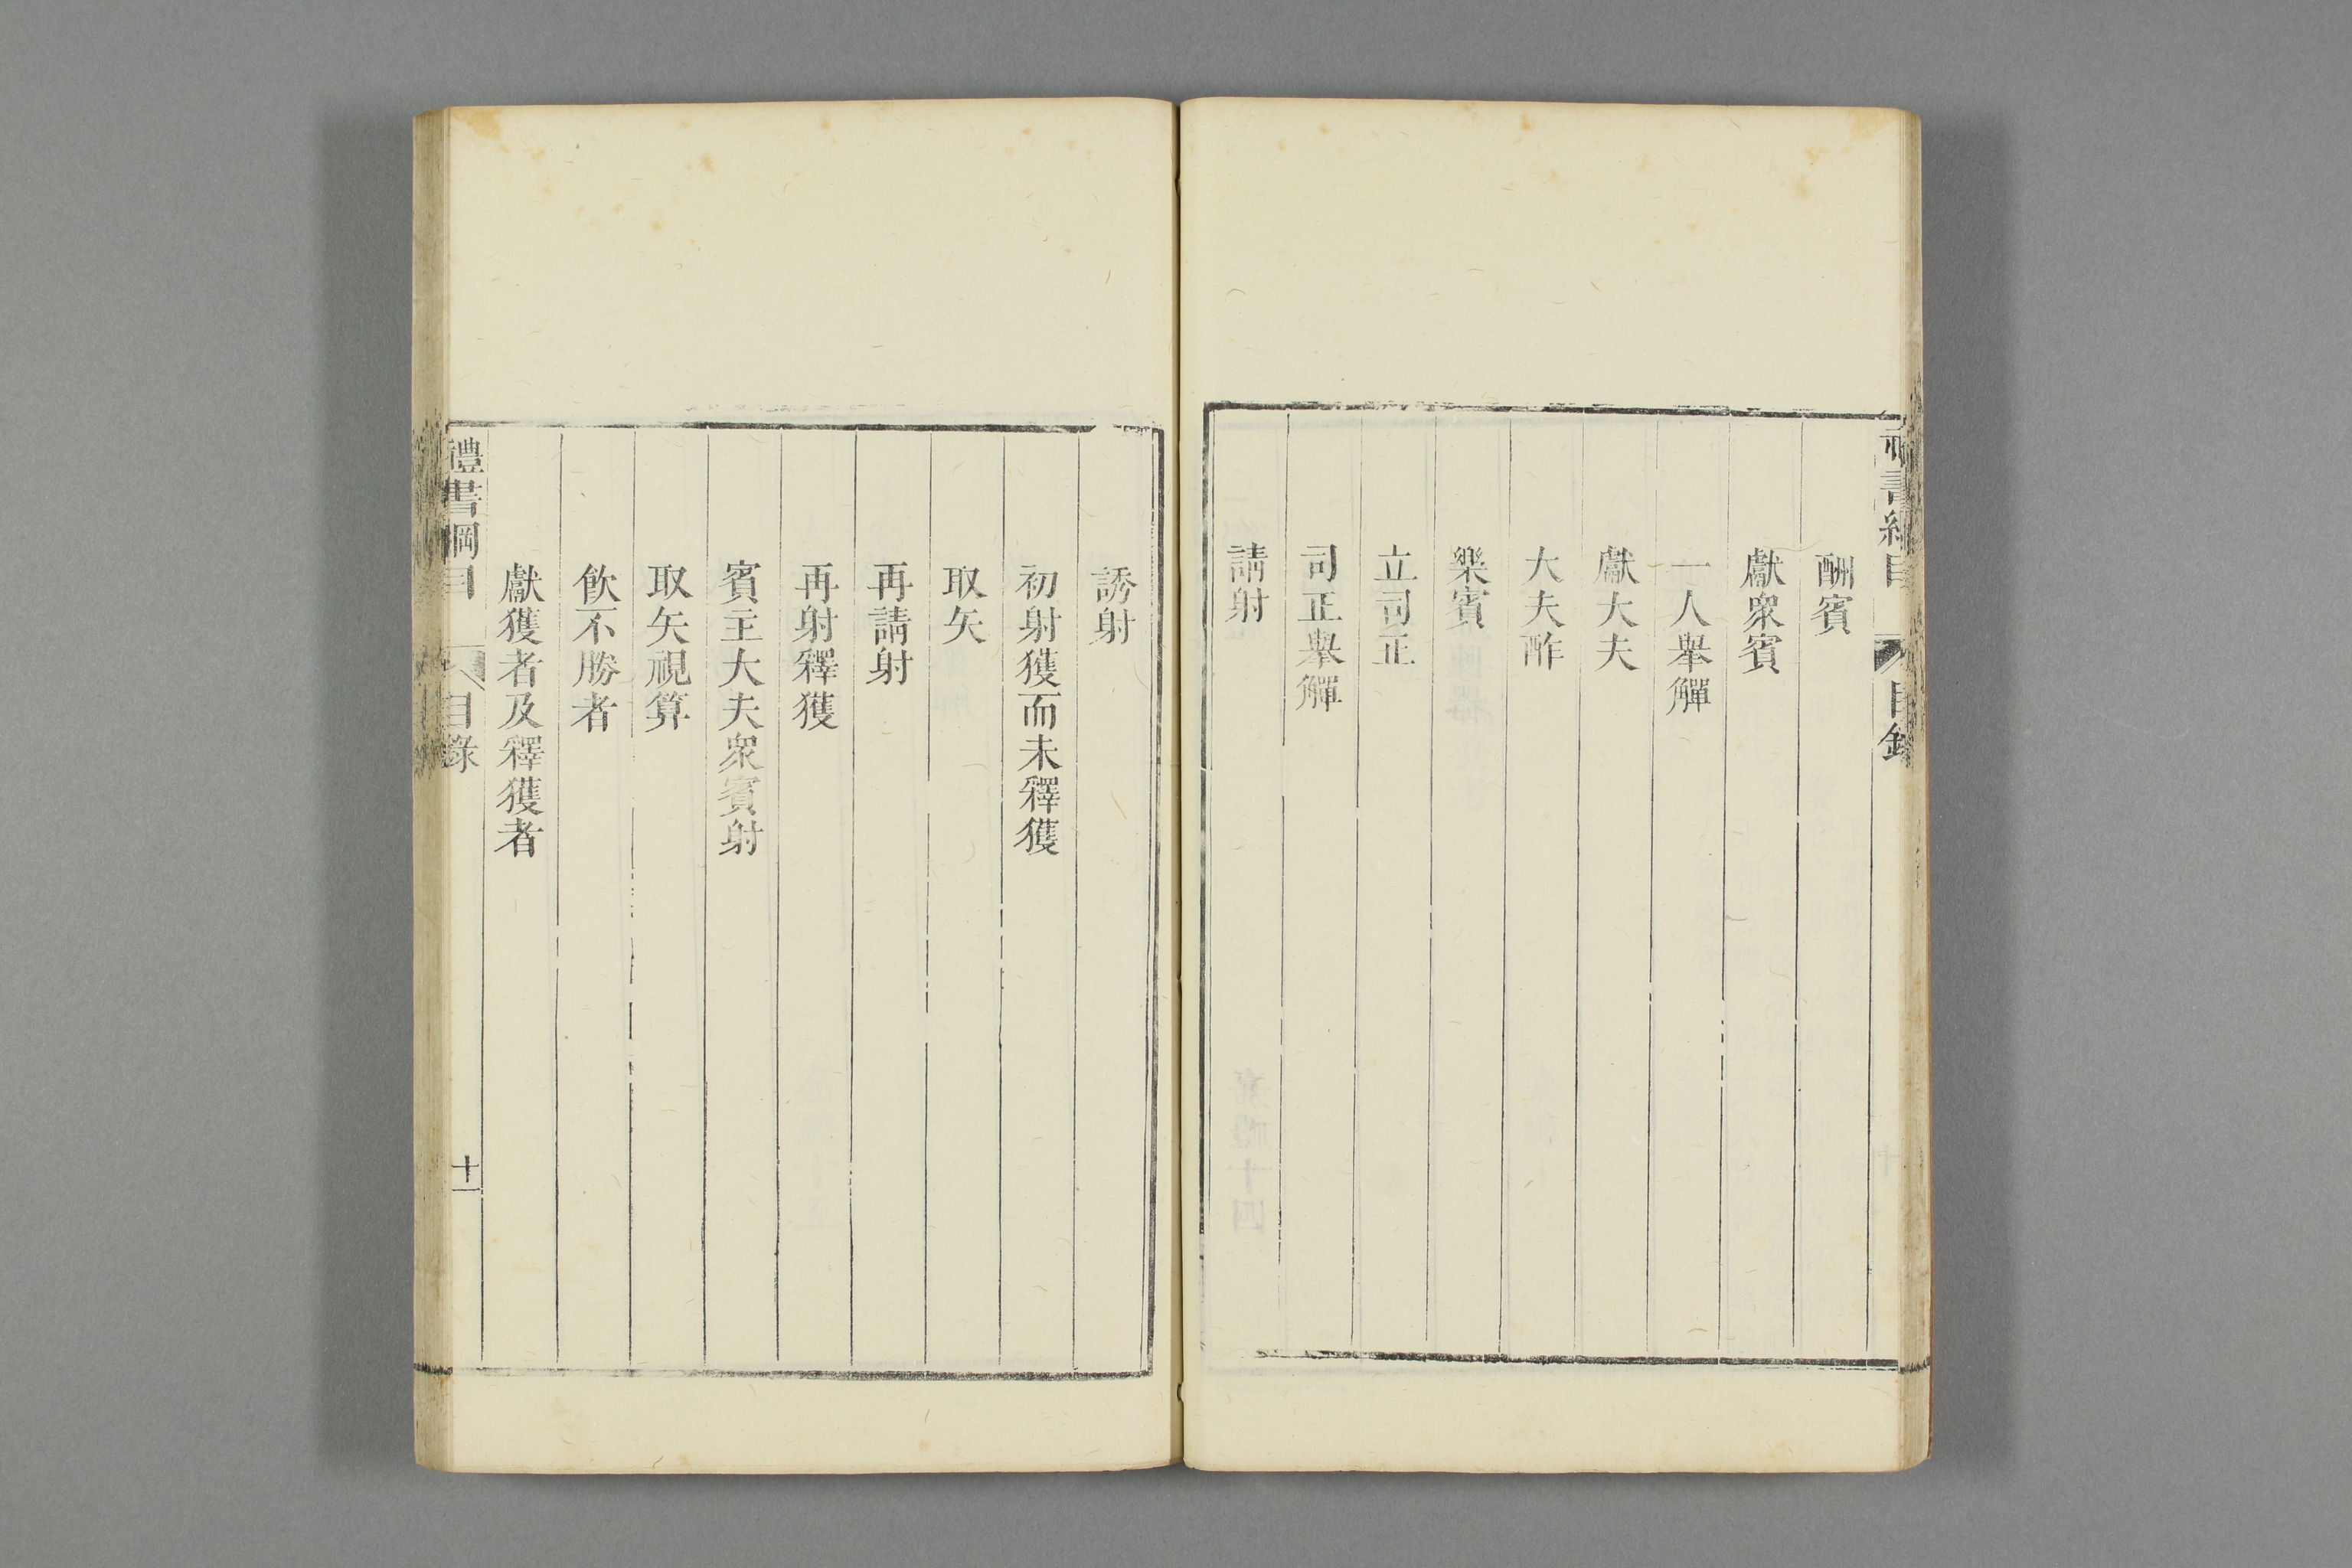 酬賓
獻衆賓
一人舉觶
獻大夫
大夫酢
樂賓
立司正
司正舉觶
請射
誘射
初射獲而未釋獲
取矢
再請射
再射釋獲
賓主大夫衆賓射
取矢視算
飲不勝者
獻獲者及釋獲者
禮書綱目
目錄
十一